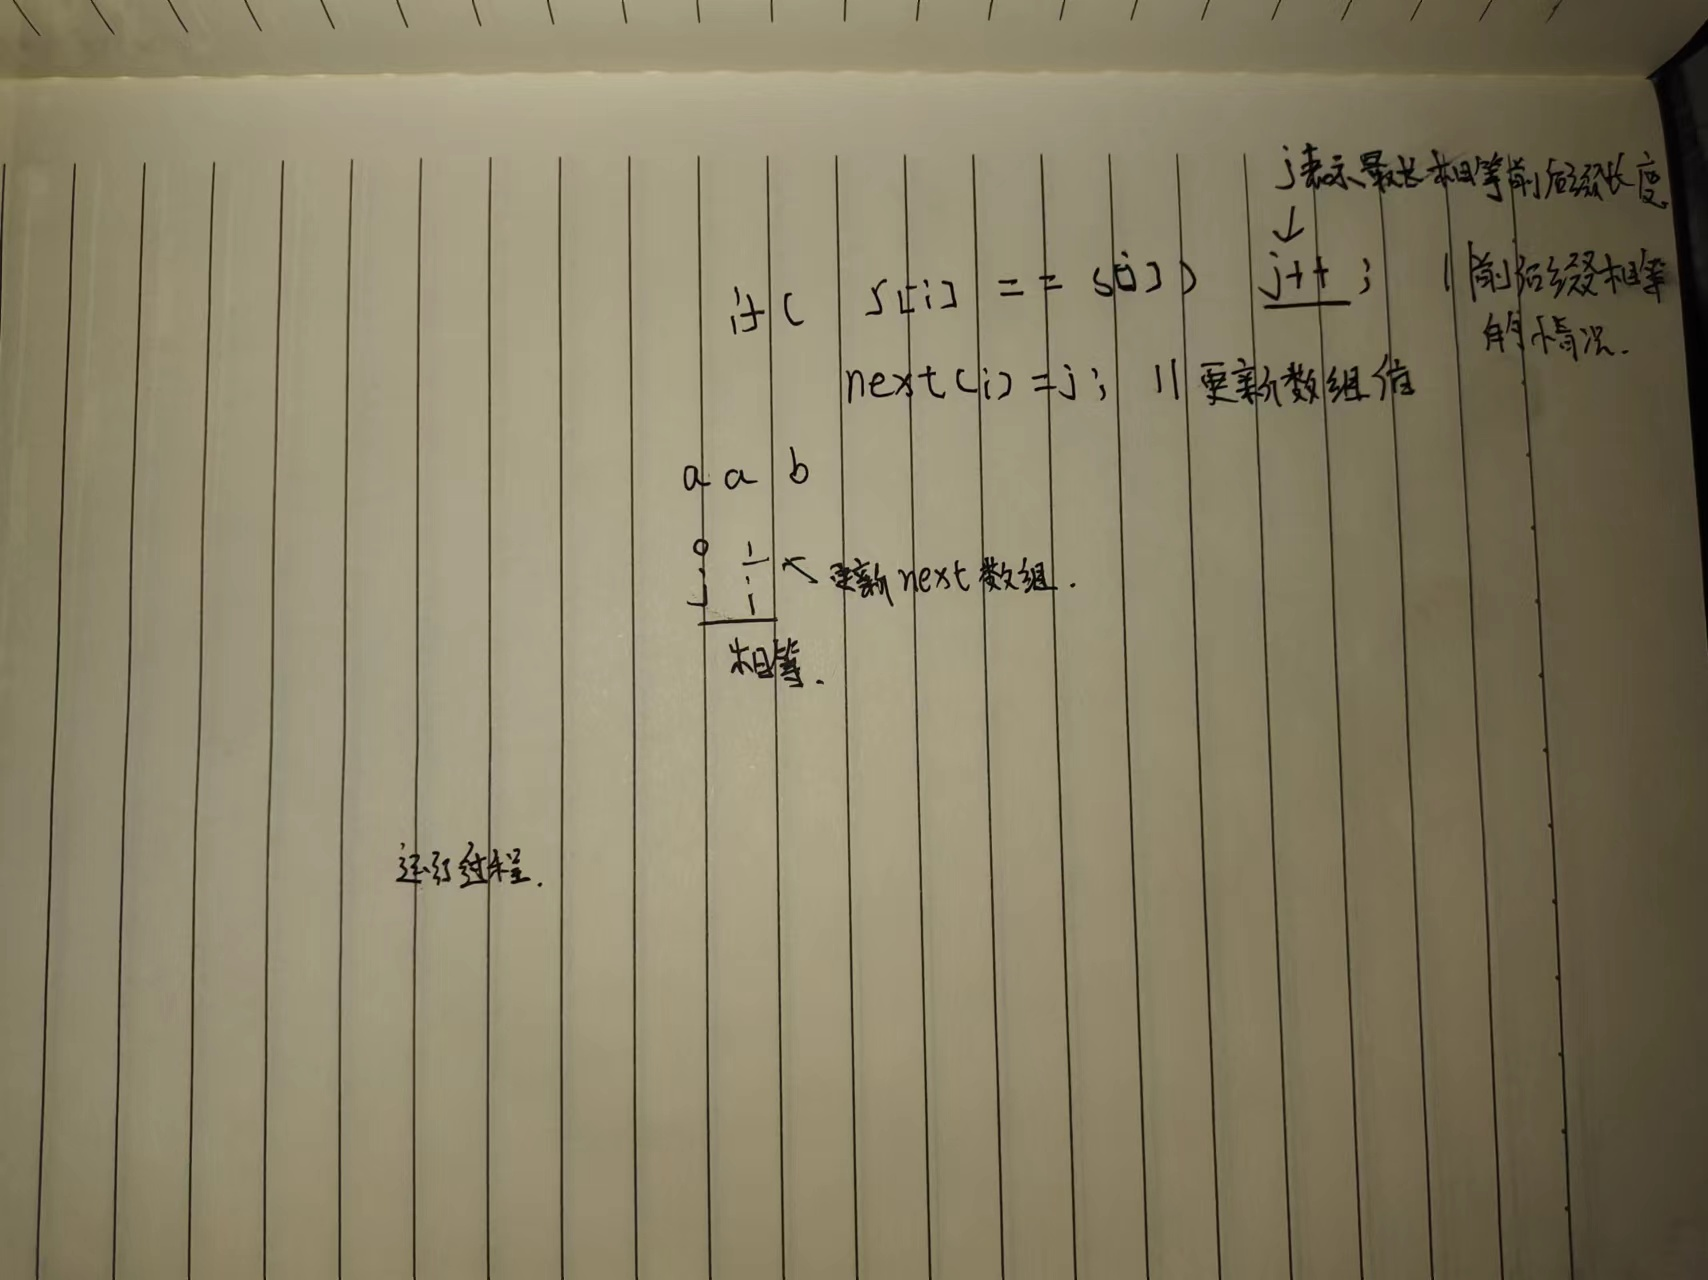 j表示最长相等前后缀长度
↓
if ( s[i] == s[j] ) j++ ; | 前后缀相等
的情况.
next(i) = j ; // 更新数组值
a a b
0 1 ↖ 更新next数组.
j i
相等.
运行过程.